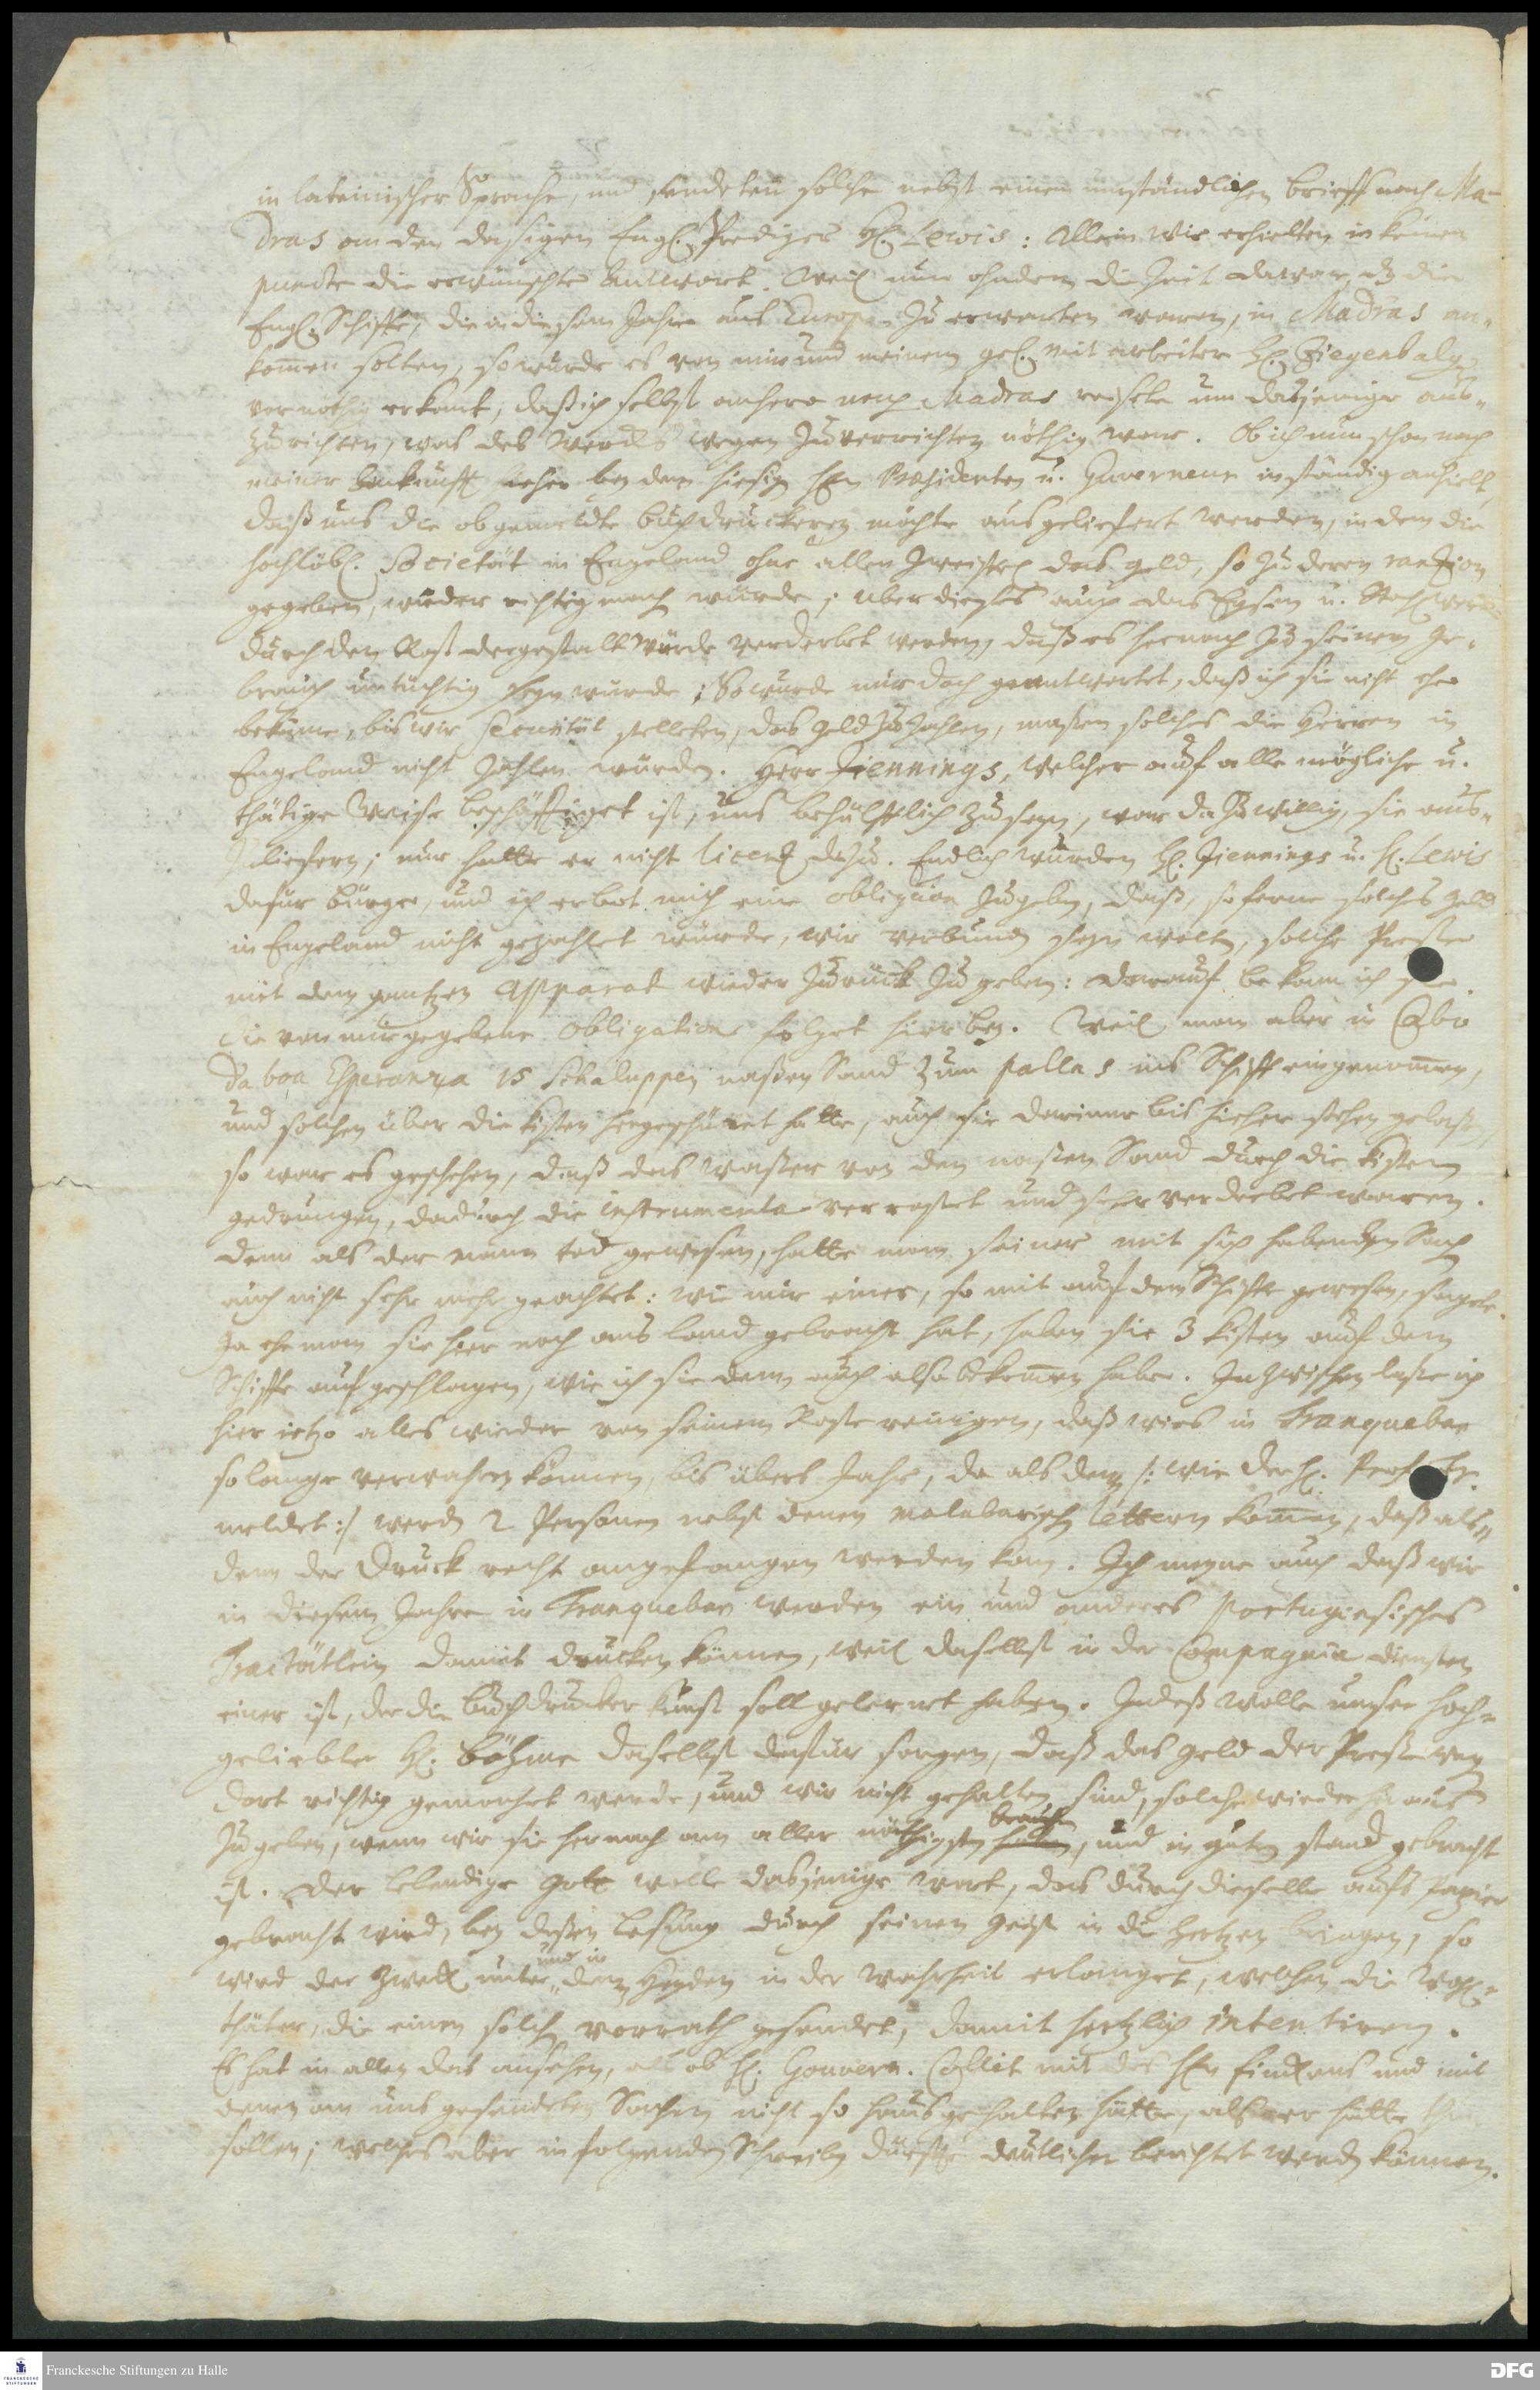 in lateinischer Sprache, und sendeten solche nebst einem umständlichen brieff nach Ma-
dras an den dasigen Engl. Prediger H. Lewis: Allein wir erhielten in keinem
puncte die erwünschte Antwort. Weil nun ohndem die Zeit da war, dz die
Engl. Schiffe, die in diesem Jahre aus Europa zu erwarten waren, in Madras an-
kom̅en solten, so wurde es von mir und meinem gel. mitarbeiter H. Ziegenbalg
vor nöthig erkant, daß ich selbst anhero nach Madras reisete um dasjenige aus-
zurichten, was des Wercks wegen zu verrichten nöthig war. Ob ich nun schon nach
meiner Ankunft hieher bey dem hiesig. Hn Præsidenten u. Guverneur inständig anhielt,
daß uns die obgemeldte buchdruckerey möchte ausgeliefert werden, indem die
hochlöbl. Societät in Engeland ohne allen Zweiffel das geld, so zu deren ranzion
gegeben, wieder richtig mach würde; uber dieses auch das Eysen u. Stahlwerck
durch den Rost dergestalt würde verderbet werden, daß es hernach zu seinem Ge-
brauch untüchtig seyn würde; So wurde mir doch geantwortet, daß ich sie nicht eher
bekäme, bis wir securität stelleten, das geld zu zahlen, maßen solches die Herren in
Engeland nicht zahlen würden. Herr Jennings, welcher auf alle mögliche u.
thätige Weise beschäfftiget ist, uns behülfflich zu seyn, war da zu willig, sie aus-
zuliefern; nur hatte er nicht licenz dazu. Endlich wurden H. Jennings u. H. Lewis
dafür bürge, und ich erbot mich eine obligation zu geben, daß, soferne solches geld
in Engeland nicht gezahlet würde, wir verbunden seyn wolten, solche Presse
mit dem gantzen Apparat wieder zurück zu geben: darauf bekam ich sie.
die von mir gegebene Obligation folget hierbey. Weil man aber in Cabo
da boa Esperanza 15 Schaluppen naßen Sand zum pallas ins Schiff eingenom̅en,
und solchen über die kisten hergeschüttet hatte, auch sie darinne bis hieher stehen gelaßen,
so war es geschehen, daß das waßer von dem naßen Sand durch die kisten
gedrungen, dadurch die instrumenta verrostet und sehr verderbet waren.
denn als der mann tod gewesen, hatte man seiner mit sich habenden Sach
auch nicht sehr mehr geachtet: wie mir einer, so mit auf dem Schiffe gewesen, sagete.
Ja ehe man sie hier noch ans land gebracht hat, haben sie 3 kisten auf dem
Schiffe aufgeschlagen, wie ich sie denn auch also bekom̅en habe. Inzwischen laße ich
hier ietzo alles wieder von seinem Roste reinigen, daß wirs in Tranquebar
solange verwahren können, bis übers Jahr, da alsdenn /: wie der H. Profess.
meldet :/ werden 2 Personen nebst denen malabarisch lettern kom̅en, daß als-
denn der Druck recht angefangen werden kan. Ich meyne auch daß wir
in diesem Jahre in Tranquebar werden ein und anderes Portugiesisches
Tractätlein damit drucken können, weil daselbst in der Compagnie diensten
einer ist, der die buchdrucker kunst soll gelernet haben. Indeß wolle unser hoch-
geliebter H. Böhme daselbst dafür sorgen, daß das geld der Presse wegen
dort richtig gemachet werde, und wir nicht gehalten sind, solche wieder heraus
zu geben, wenn wir sie hernach am aller nöthigsten brauchen, und in guten stand gebracht
ist. Der lebendige Gott wolle dasjenige wort, das durch dieselbe aufs Papier
gebracht wird, bey deßen lesung durch seinen Geist in die hertzen bringen, so
wird der Zweck unter und in den Heyden in der Wahrheit erlanget, welchen die Wohl-
thäter, die einen solch vorrath gesendet, damit hertzlich intentiren.
Es hat in allen das ansehen, als ob H. Gouvern. Collet mit des Hn Finckens und mit
denen an uns gesandten Sachen nicht so haus gehalten hätte, als er hätte thun
sollen; welches aber in folgenden Schreiben dürffte deutlicher berichtet werden können.
Franckesche Stiftungen zu Halle
FRANCKESCHE STIFTUNGEN
DFG